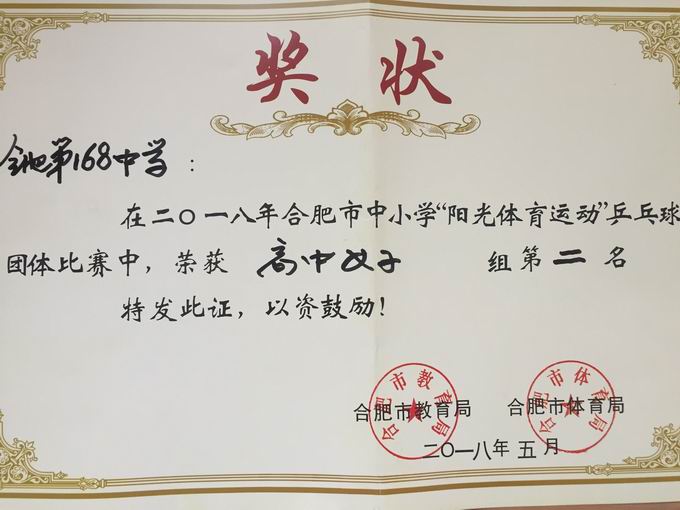 奖状
合肥第168中学：
在二〇一八年合肥市中小学“阳光体育运动”乒乓球
团体比赛中，荣获 高中女子 组第二名
特发此证，以资鼓励！
合肥市教育局 合肥市体育局
合肥市教育局 合肥市体育局
二〇一八年五月